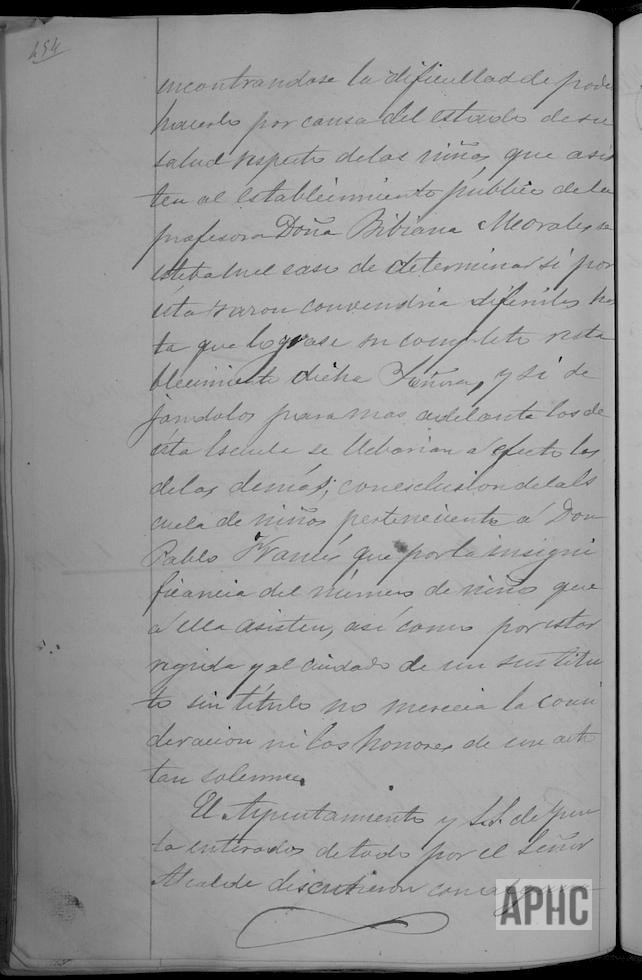 454
encontrandose la dificultad de poder
hacerlo por causa del estado de su
salud respecto de las niñas que asis
ten al establecimiento público de la
profesora Doña Bibiana Morales se
estaba en el caso de determinar si por
esta razon convendria diferirlos has
ta que lograse su completo resta
blecimiento dicha Señora, y si de
jandolos para mas adelante los de
esta Escuela se llebarian a efecto los
de las demás; con esclusion de la Es
cuela de niños perteneciente á Don
Pablo que por la insigni
ficancia del número de niños que
á ella asisten, así como por estar
regida y al cuidado de un sustitu
to sin título no merecia la consi
deracion ni los honores de un acto
tan solemne.
El Ayuntamiento y S.S. de Jun
ta enterados de todo por el Señor
Alcalde discutieron con
APHC